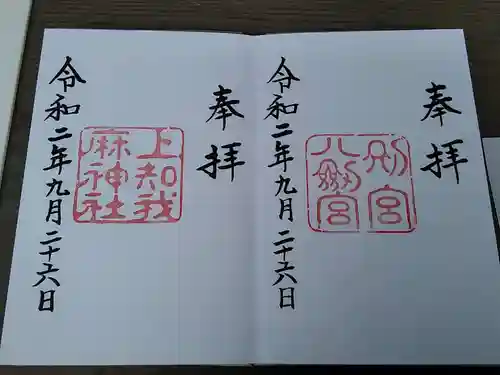 奉拝
別宮
八剱宮
令和二年九月二十六日
奉拝
上知我
麻神社
令和二年九月二十六日